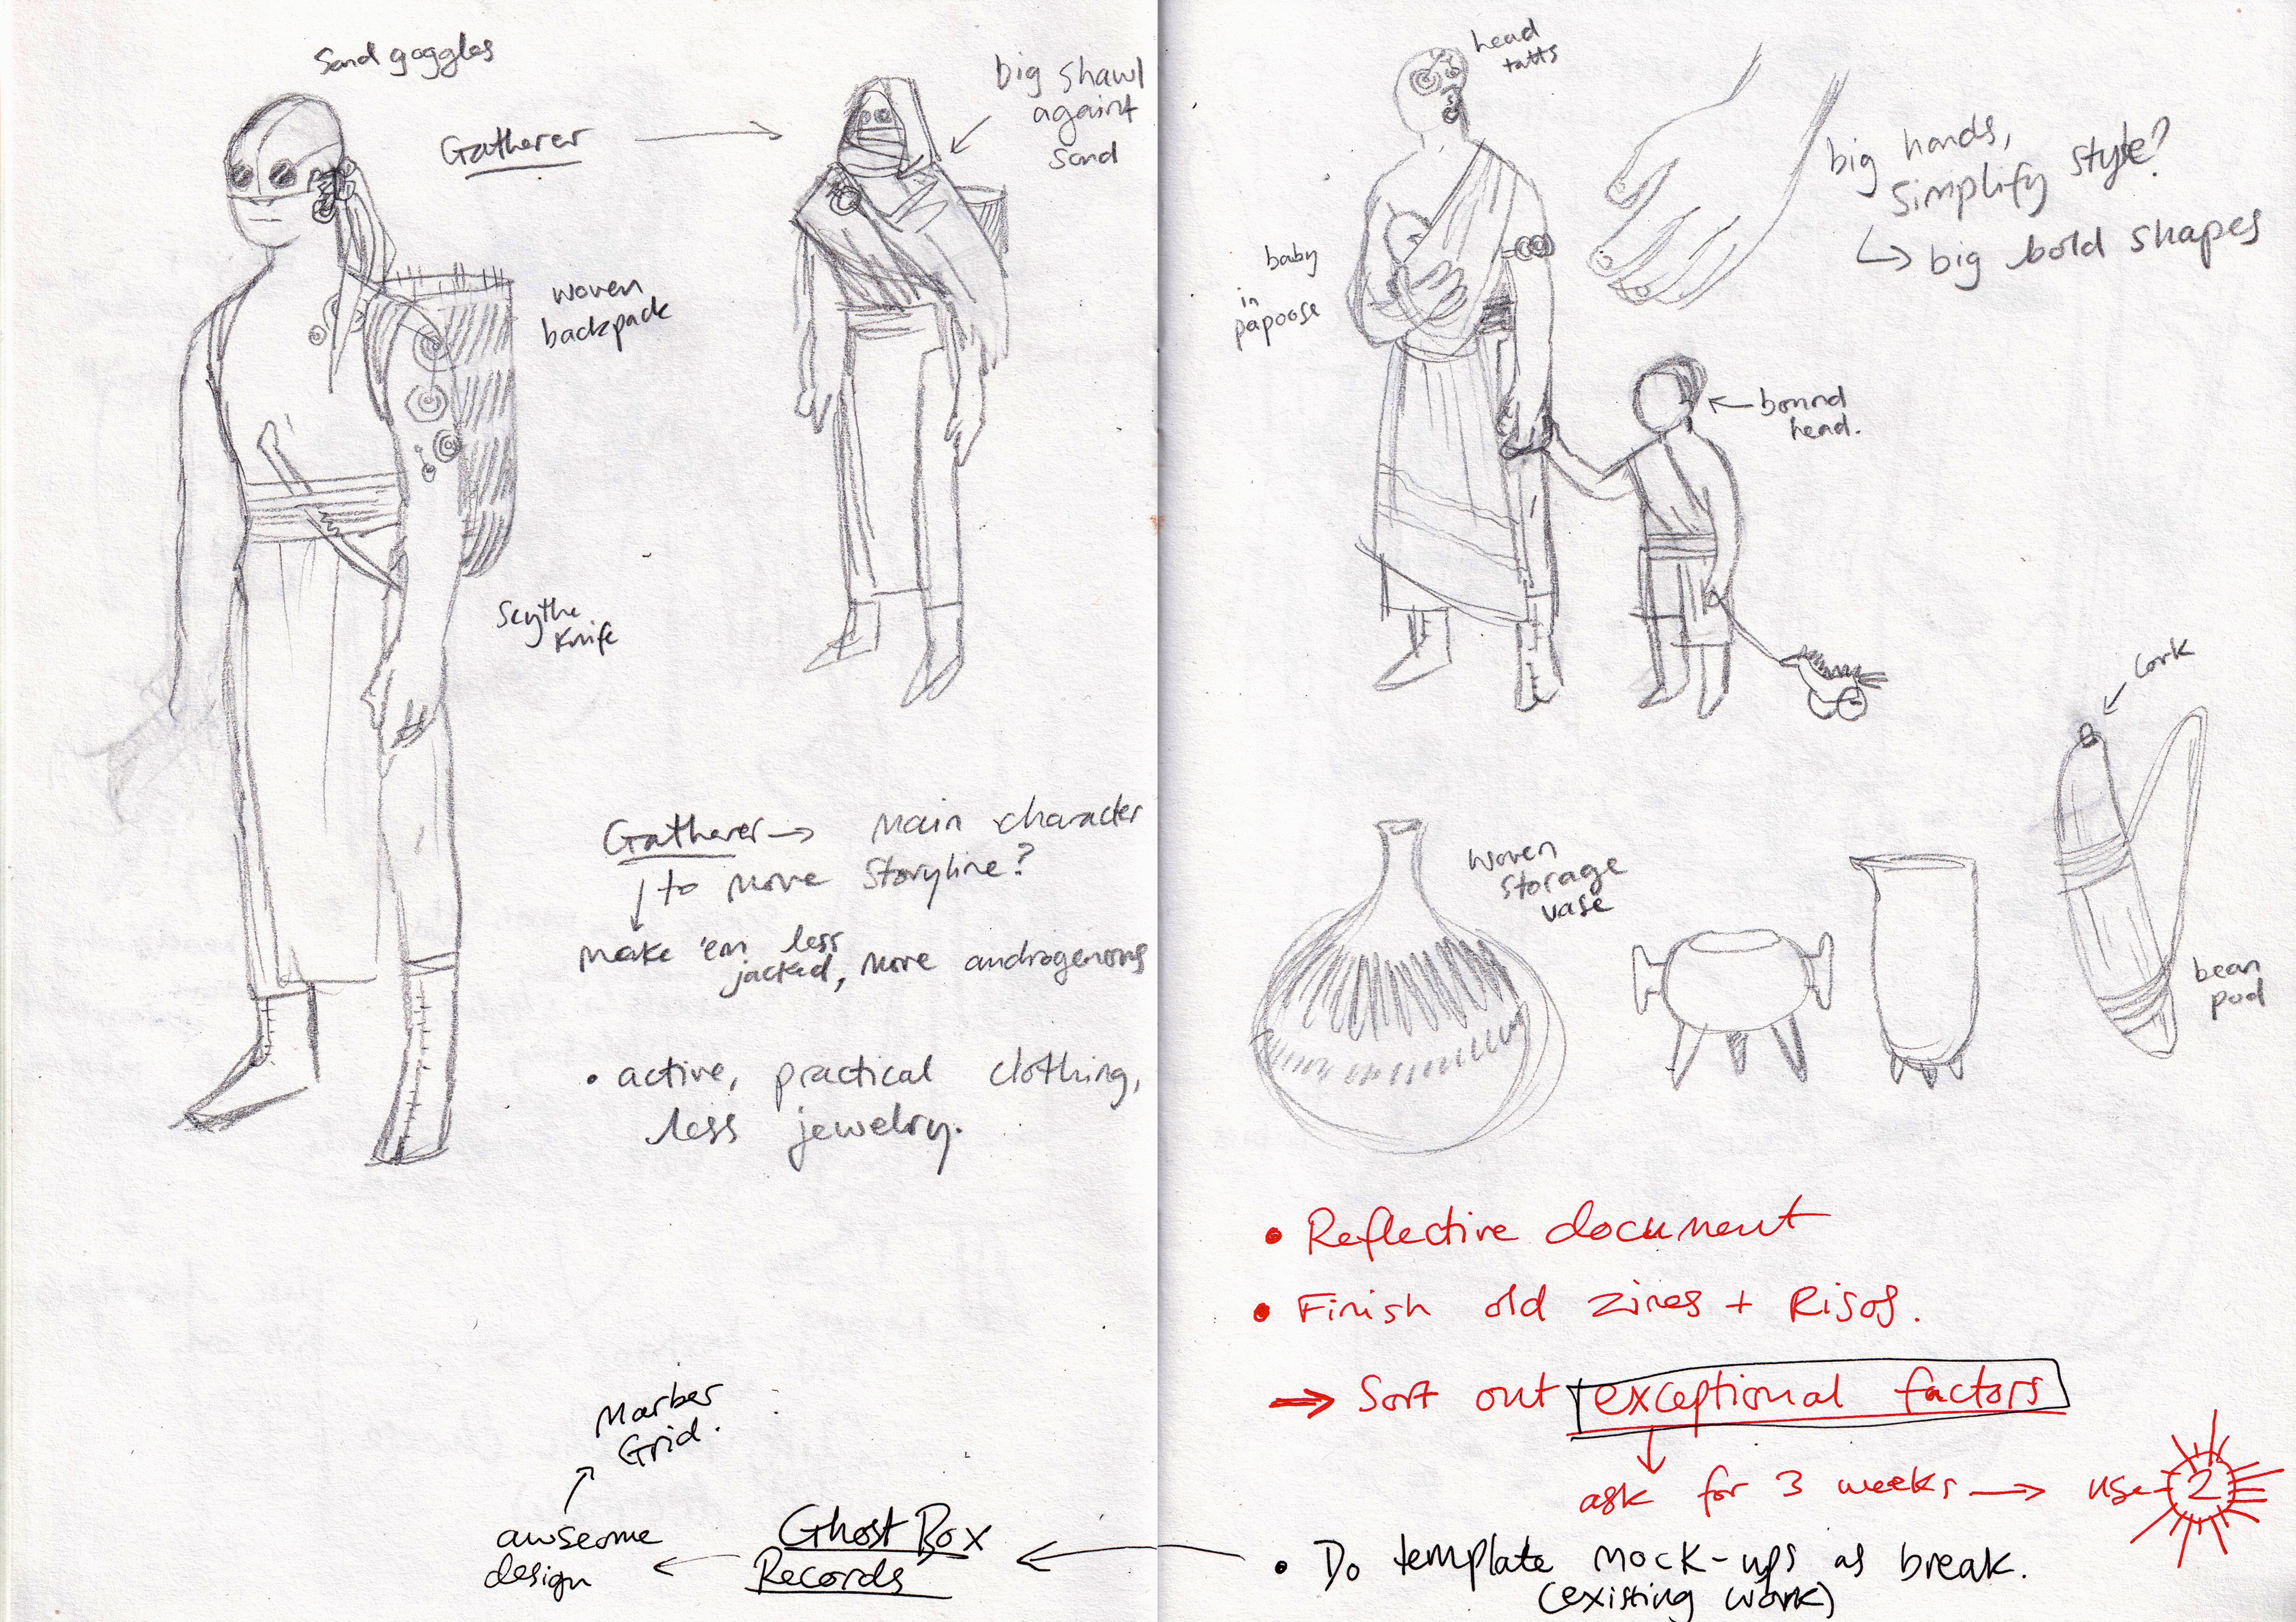 Sand goggles
Gatherer
big shawl
againt
sand
woven
backpack
Scythe
Knife
Gatherer → main character
to move storyline?
make 'em less
jacked, more androgenous
• active, practical clothing,
less jewelry.
Marber
Grid.
awseome
design
Ghost Box
Records
head
tatts
big hands,
simplify style?
↳ big bold shapes
baby
in
papoose
bound
head.
cork
woven
storage
vase
bean
pod
• Reflective document
• Finish old zines + Risos.
→ Sort out exceptional factors
ask for 3 weeks → use 2
• Do template mock-ups as break.
(existing work)